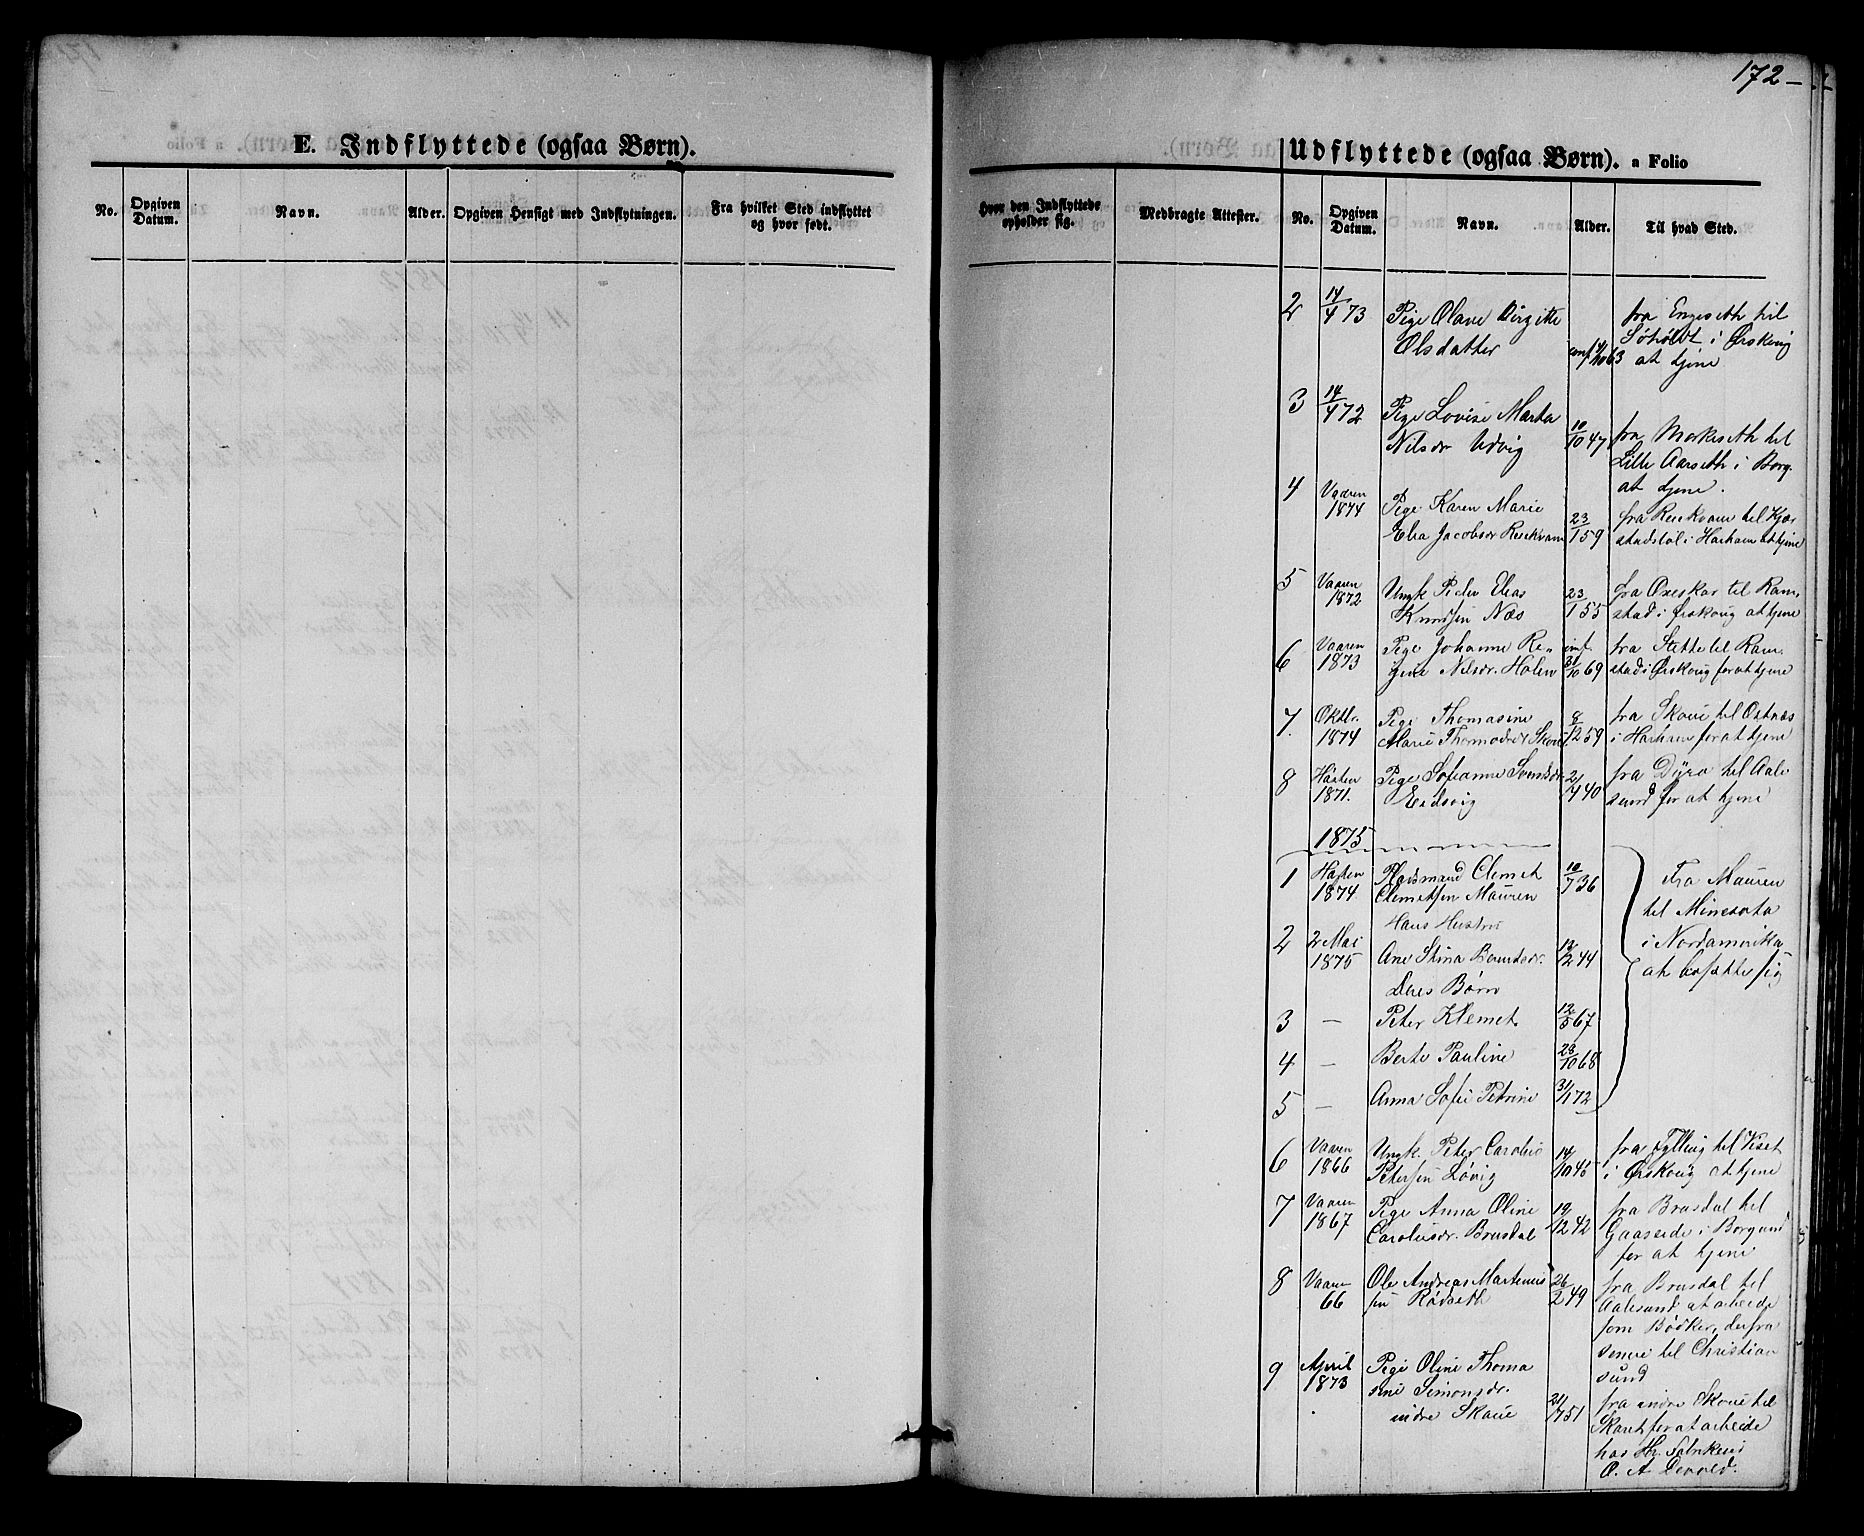 172
E. Indflyttede (ogsaa Børn).
No.
Opgiven Datum.
Navn.
Alder.
Opgiven Hensigt med Indflytningen.
Fra hvilket Sted indflyttet og hvor født.
Hvor den Indflyttede opholder sig.
Medbragte Attester.
Udflyttede (ogsaa Børn). a Folio
No.
Opgiven Datum.
Navn.
Alder.
Til hvad Sted.
2 14/4 73 Pige Olave Birgitte fra Engeseth til
Olsdatter conf 4/10 63 Søholdt i Ørskoug
at tjene
3 14/4 72 Pige Lovise Marta
Nilsdr Udvig 10/10 47 fra Morkeseth til
Lille Aarseth i Borg.
at tjene.
4 Vaaren 1874 Pige Karen Marie fra Resekvam til Kjær
Elea Jacobsdr Resekvam 23/1 59 stadstøl i Harham at tjene
5 Vaaren 1872 Ungk. Peder Elias 23/1 55 fra Oxeskar til Ram
Knudsen Næs stad i Ørskoug at tjene
6 Vaaren 1873 Pige Johanne Re- conf. fra Stette til Ram
gine Nilsdr. Holen 31/10 69 stad i Ørskoug for at tjene
7. Oktbr. 1874 Pige Thomasine 8/12 59 fra Skoue til Østnæs
Marie Thormodsdr Skoue i Harham for at tjene
8 Høsten 1871. Pige Sofianne Svendsdr 2/4 40 fra Dyro til Aale
Eidsvig sund for at tjene
1875
1 Høsten 1874 Pladsmand Clemet 10/7 36 Fra Mauren
Clemetsen Mauren til Minesota
Hans Hustru i Nordamerika
2 2 Mai 1875 Ane Stina Berntsdr. 13/2 44 at bosætte sig
Deres Børn
3 — Peter Klemet 12/5 67
4 — Berte Pauline 28/10 68
5 — Anna Sofie Petrine 31/1 72
6 Vaaren 1866 Ungk. Peter Carolus 14/10 45 fra Fylling til Viset
Petersen Løvig i Ørskoug at tjene
7 Vaaren 1867 Pige Anna Oline 19/12 42 fra Brusdal til
Carolusdr. Brusdal Gaaseide i Borgund
for at tjene
8 Vaaren 66 Ole Andreas Martinus 26/2 49 fra Brusdal til
sen Rødseth Aalesund at arbeide
som Bødker, derfra
senere til Christian
sund
9 April 1873 Pige Oline Thoma
sine Simonsdr.
indre Skoue 21/7 51 fra indre Skoue til
for at arbeide
hos Hr. Fabrikeier
O. A. Devold.